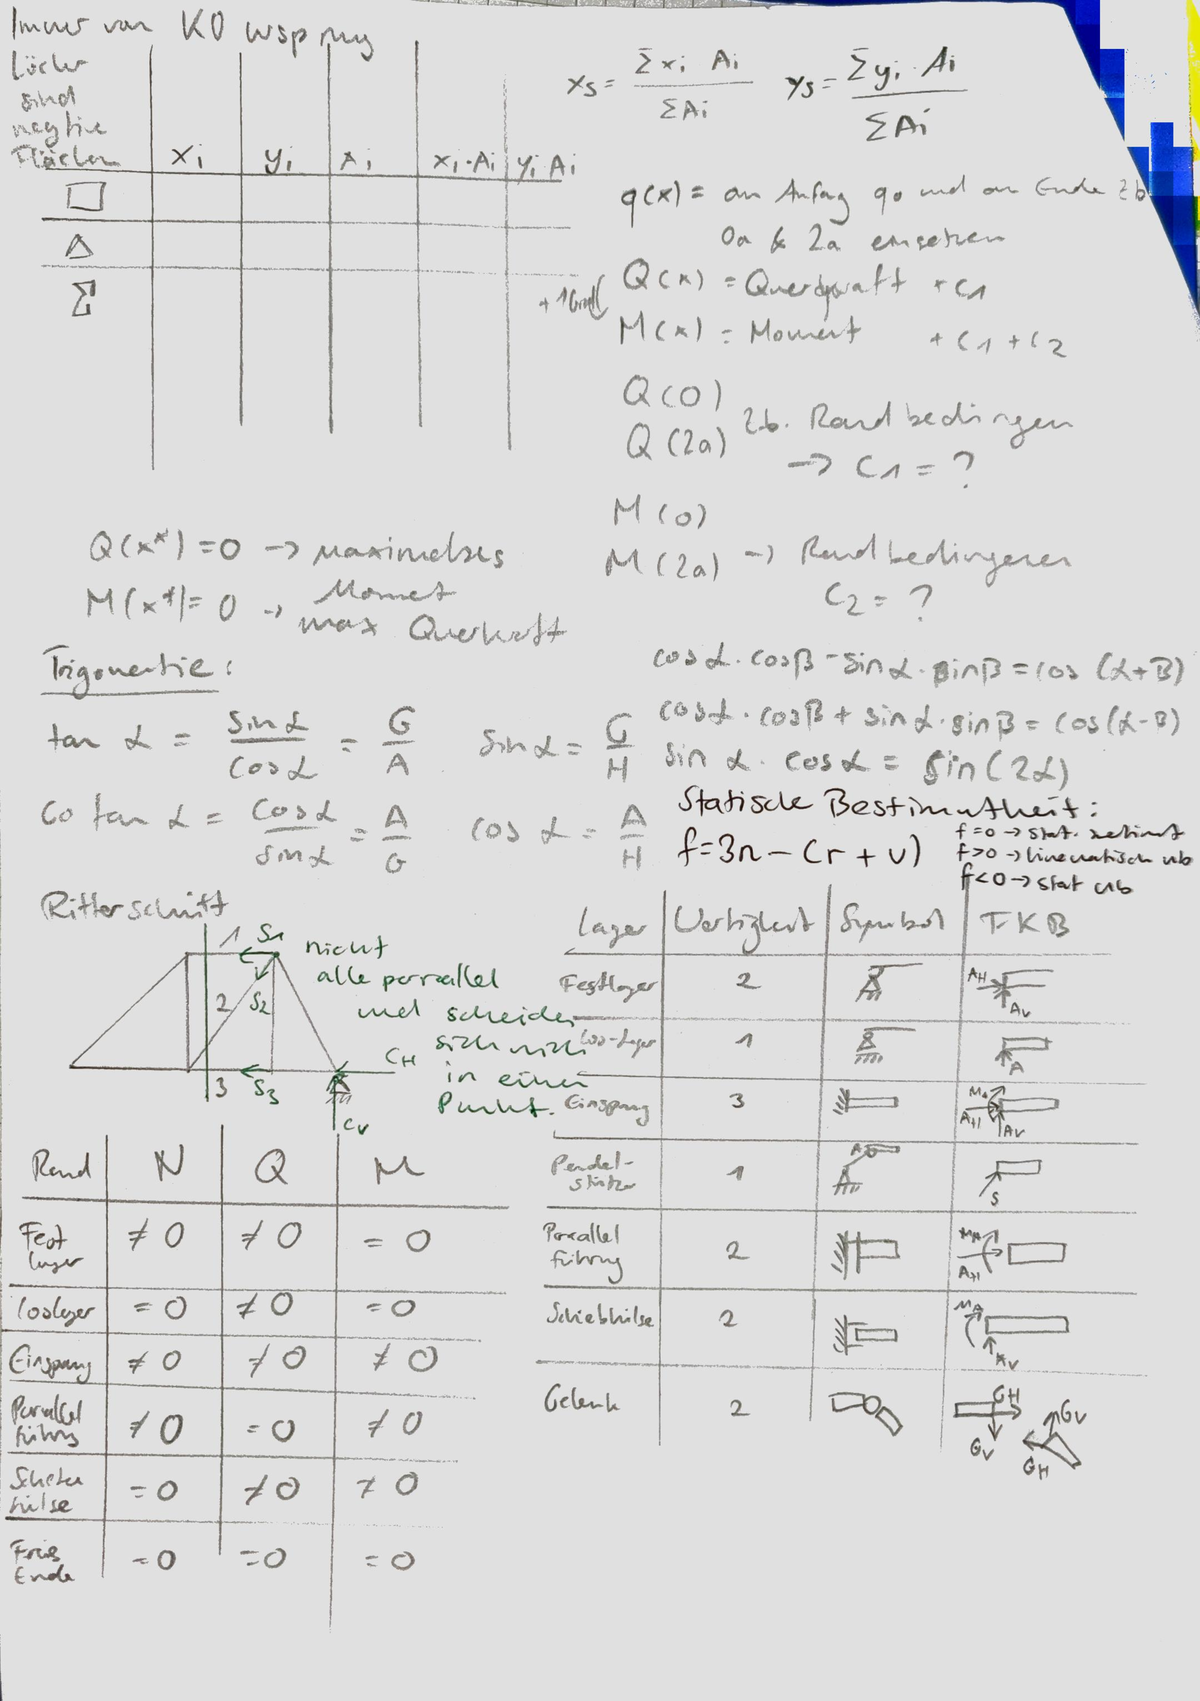 Immer von KO Ursprung
Löcher
sind
negtive
Flächen
xi yi Ai xi·Ai yi Ai
Σ
xs = Σxi Ai / ΣAi ys = Σyi · Ai / ΣAi
q(x) = an Anfag q0 und an Ende zb
0a & 2a einsetzen
Q(x) = Querkraft + C1
+1Grad(
M(x) = Moment + C1 + C2
Q(0)
Q(2a) zb. Randbedingen
→ C1 = ?
M(0)
M(2a) → Randbedingenen
C2 = ?
Q(x*) = 0 → maximales
Momet
M(x*) = 0 → max Querkraft
Trigonentie:
tan α = sinα / cosα = G / A sinα = G / H
Co tan α = cosα / sinα = A / G cos α = A / H
cosα·cosβ-sinα·sinβ=cos(α+β)
cosα·cosβ+sinα·sinβ=cos(α-β)
sin α · cosα = sin(2α)
Statische Bestimmtheit:
f=3n-(r+v)
f=0 → stat. bestimt
f>0 → kinematisch ub
f<0 → stat ub
Ritterschnitt
1 S1
2 S2
3 S3
CH
CV
nicht
alle parrallel
und scheiden
sich nich
in einen
Punkt.
Lager Wertigkeit Symbol FKB
Festlager 2 AH AV
Los-Lager 1 A
Einspang 3 MA AH AV
Pendel-
stütze 1 A S
Parallel
führung 2 MA AH
Schiebhülse 2 MA AV
Gelenk 2 GH GV GV GH
Rand N Q M
Fest
lager ≠ 0 ≠ 0 = 0
Loslager = 0 ≠ 0 = 0
Einspang ≠ 0 ≠ 0 ≠ 0
Parallel
führung ≠ 0 = 0 ≠ 0
hülse = 0 ≠ 0 ≠ 0
Freies
Ende = 0 = 0 = 0